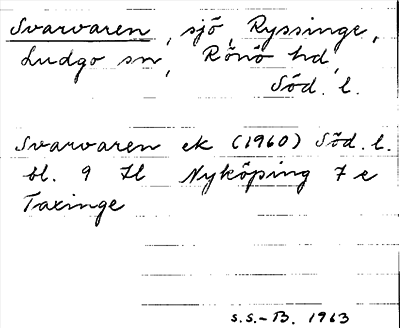 Svarvaren, sjö, Ryssinge,
Ludgo sn, Rönö hd,
Söd. l.
Svarvaren ek (1960) Söd. l.
bl. 9 Il Nyköping 7 e
Taxinge
S.S.-B. 1963